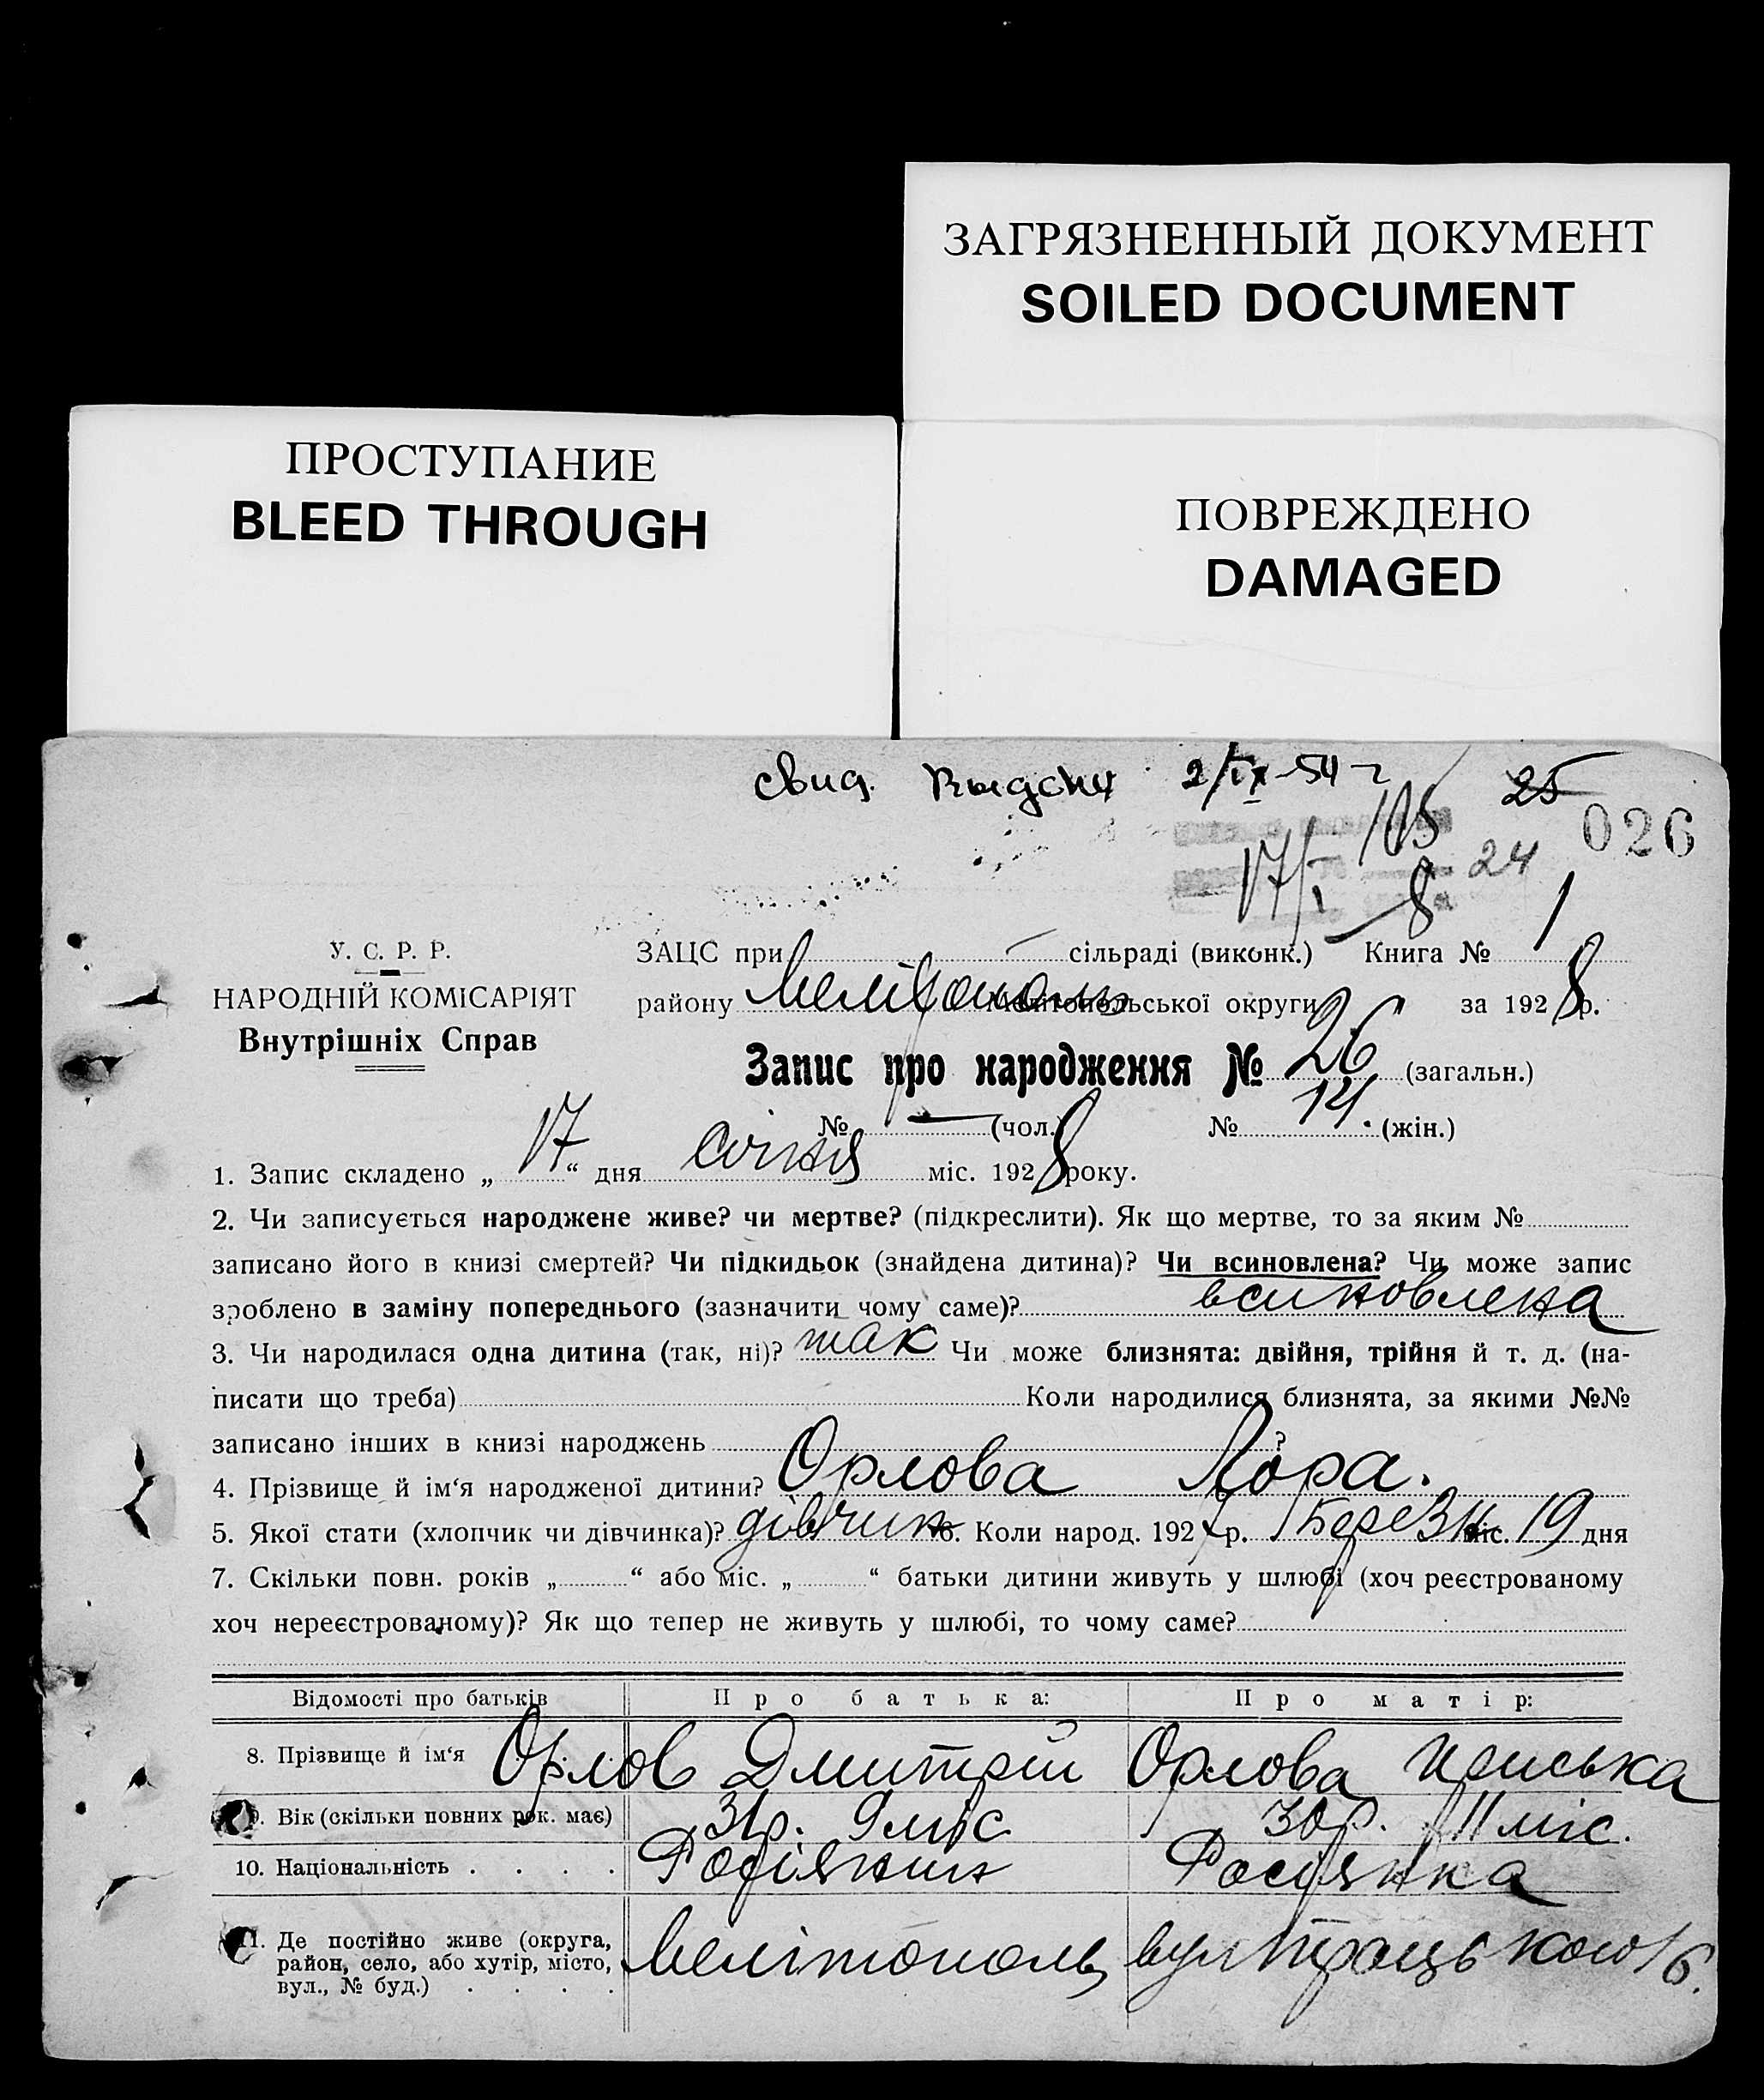 ЗАГРЯЗНЕННЫЙ ДОКУМЕНТ
SOILED DOCUMENT
ПРОСТУПАНИЕ
BLEED THROUGH
ПОВРЕЖДЕНО
DAMAGED
свид. 2/IX-54 г
25
105
026
17/I 8
24
У. С. Р. Р.
НАРОДНІЙ КОМІСАРІЯТ
Внутрішніх Справ
ЗАЦС при сільраді (виконк.) Книга № 1
району Мелітополь Мелітопольської округи за 1928 р.
Запис про народження № 26 (загальн.)
№ — (чол.) № 14. (жін.)
1. Запис складено „17“ дня січня міс. 1928 року.
2. Чи записується народжене живе? чи мертве? (підкреслити). Як що мертве, то за яким №
записано його в книзі смертей? Чи підкидьок (знайдена дитина)? Чи всиновлена? Чи може запис
зроблено в заміну попереднього (зазначити чому саме)? всиновлена
3. Чи народилася одна дитина (так, ні)? так Чи може близнята: двійня, трійня й т. д. (на-
писати що треба) Коли народилися близнята, за якими №№
записано інших в книзі народжень ?
4. Прізвище й ім‘я народженої дитини? Орлова Лора.
5. Якої стати (хлопчик чи дівчинка)? дівчин 6. Коли народ. 1927 р. Березн міс. 19 дня
7. Скільки повн. років „ “ або міс. „ “ батьки дитини живуть у шлюбі (хоч реєстрованому
хоч нереєстрованому)? Як що тепер не живуть у шлюбі, то чому саме?
Відомості про батьків Про батька: Про матір:
8. Прізвище й ім‘я Орлов Дмитрій Орлова
9. Вік (скільки повних рок. має) 31р. 9 міс 30р. 11 міс.
10. Національність . . . . Росіянин Росіянка
11. Де постійно живе (округа,
район, село, або хутір, місто,
вул., № буд.) . . . . Мелітополь вул Троцького 16.